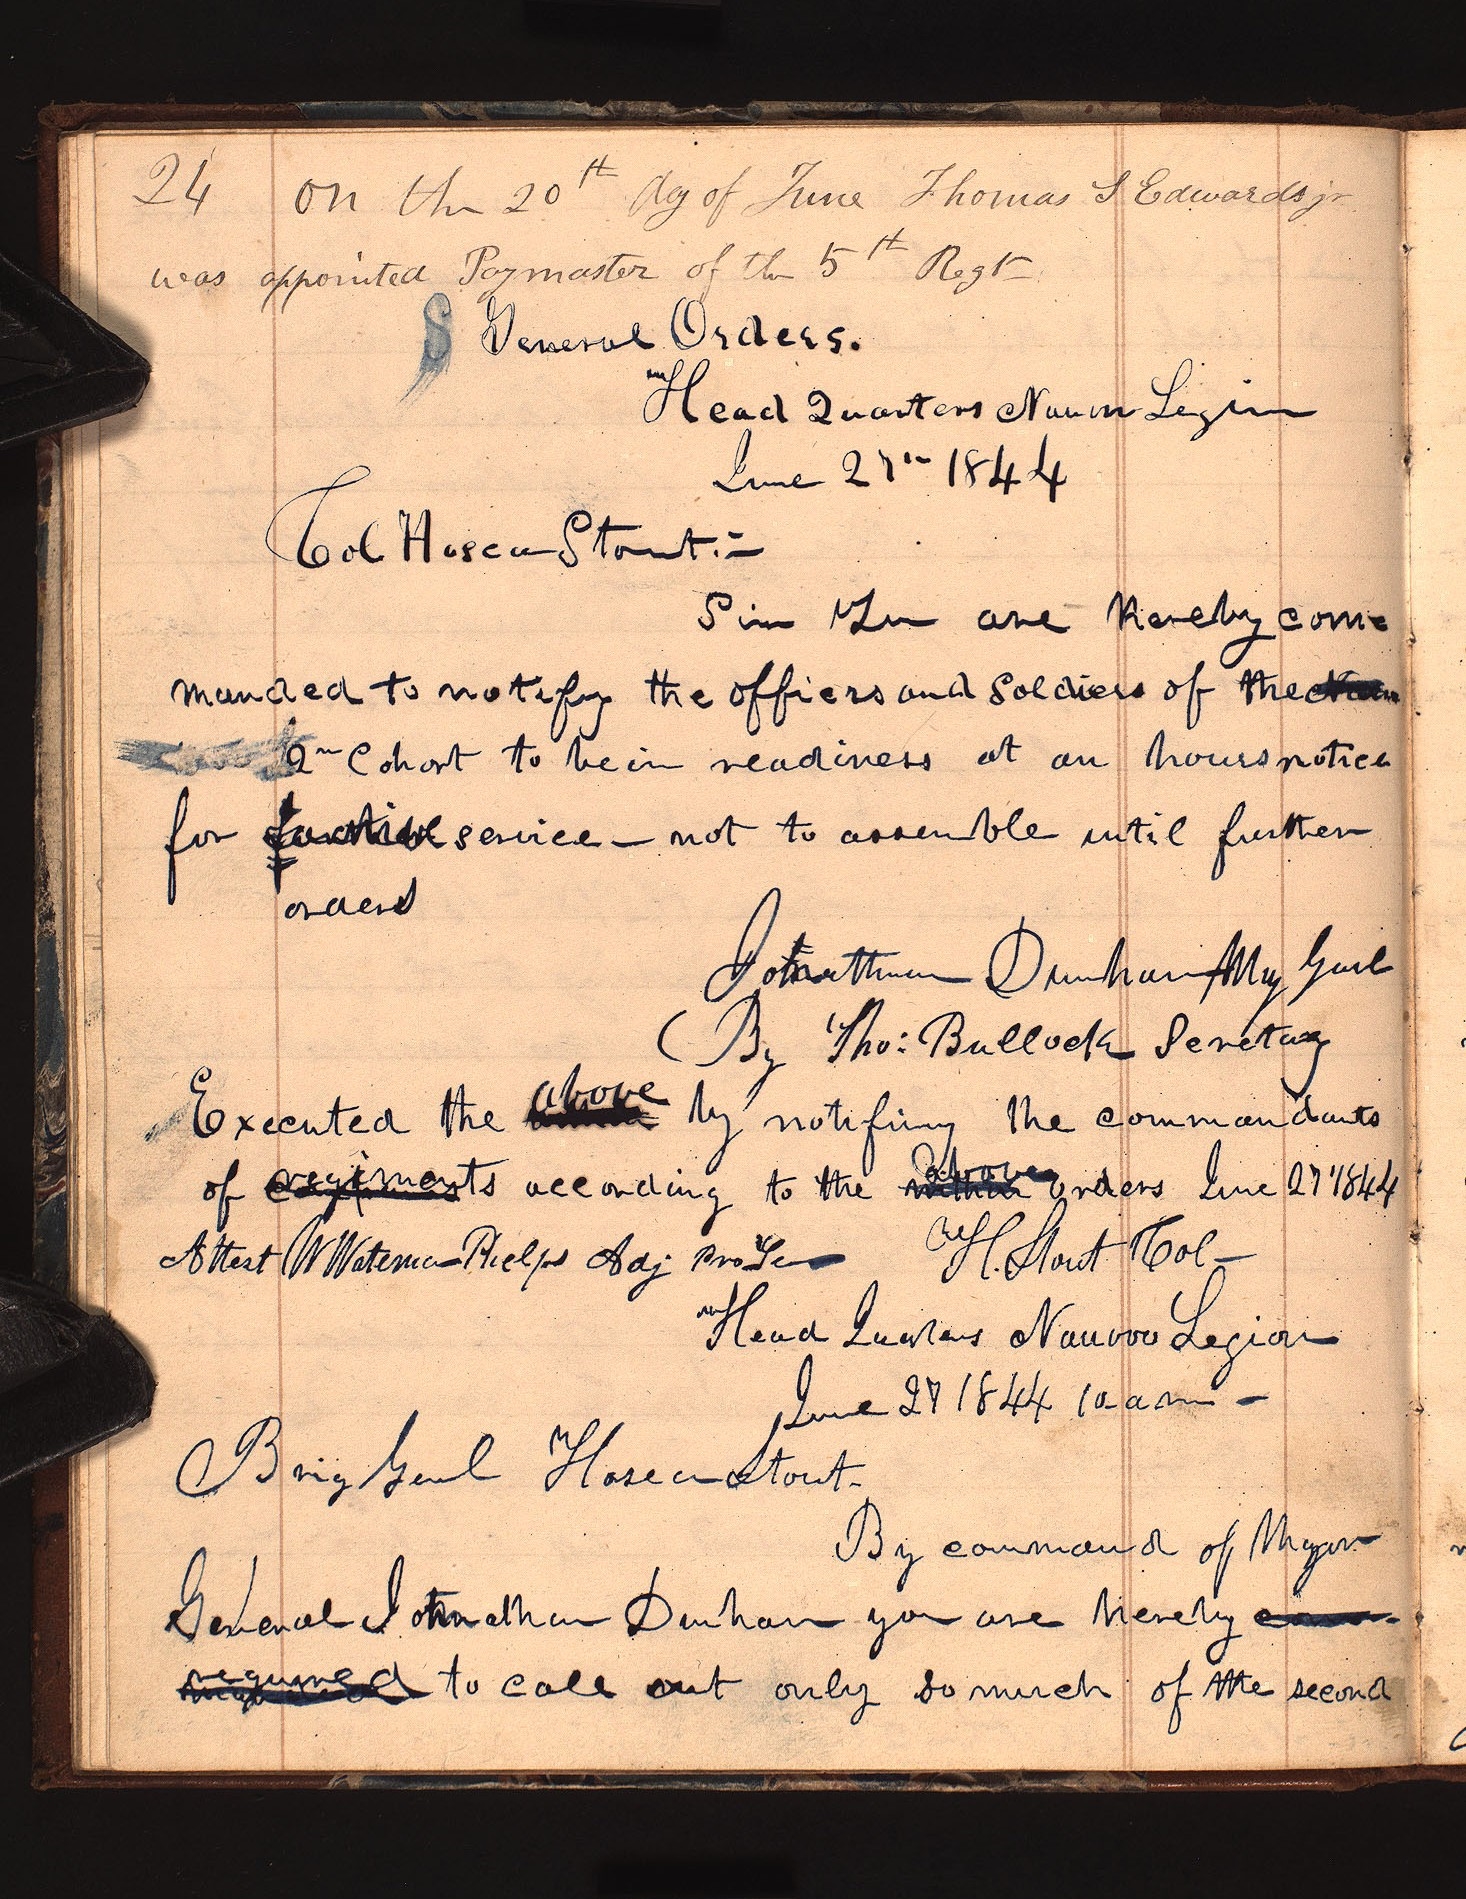 24 on the 20th day of June Thomas S Edwards jr
was appointed Paymaster of the 5th Regt
General Orders.
Head Quarters Nauvoo Legion
June 27th 1844
Col Hosea Stout:–
Sir You are hereby com-
manded to notify the offiers and Soldiers of the
2nd Cohort to be in readiness at an hours notice
for service – not to assemble until further
orders
Johnathan Dunham Maj Genl
(By Tho: Bullock Secretay
Executed the above by notifiing the commandants
of regiments according to the above orders June 27 1844
Attest W Waterman Phelps Adj Pro Tem H. Stout Col –
Head Quarters Nauvoo Legion
June 27 1844 10 am –
Brig Genl Hosea Stout.
By command of Major
General Johnathan Dunham you are hereby
required to call out only so much of the second